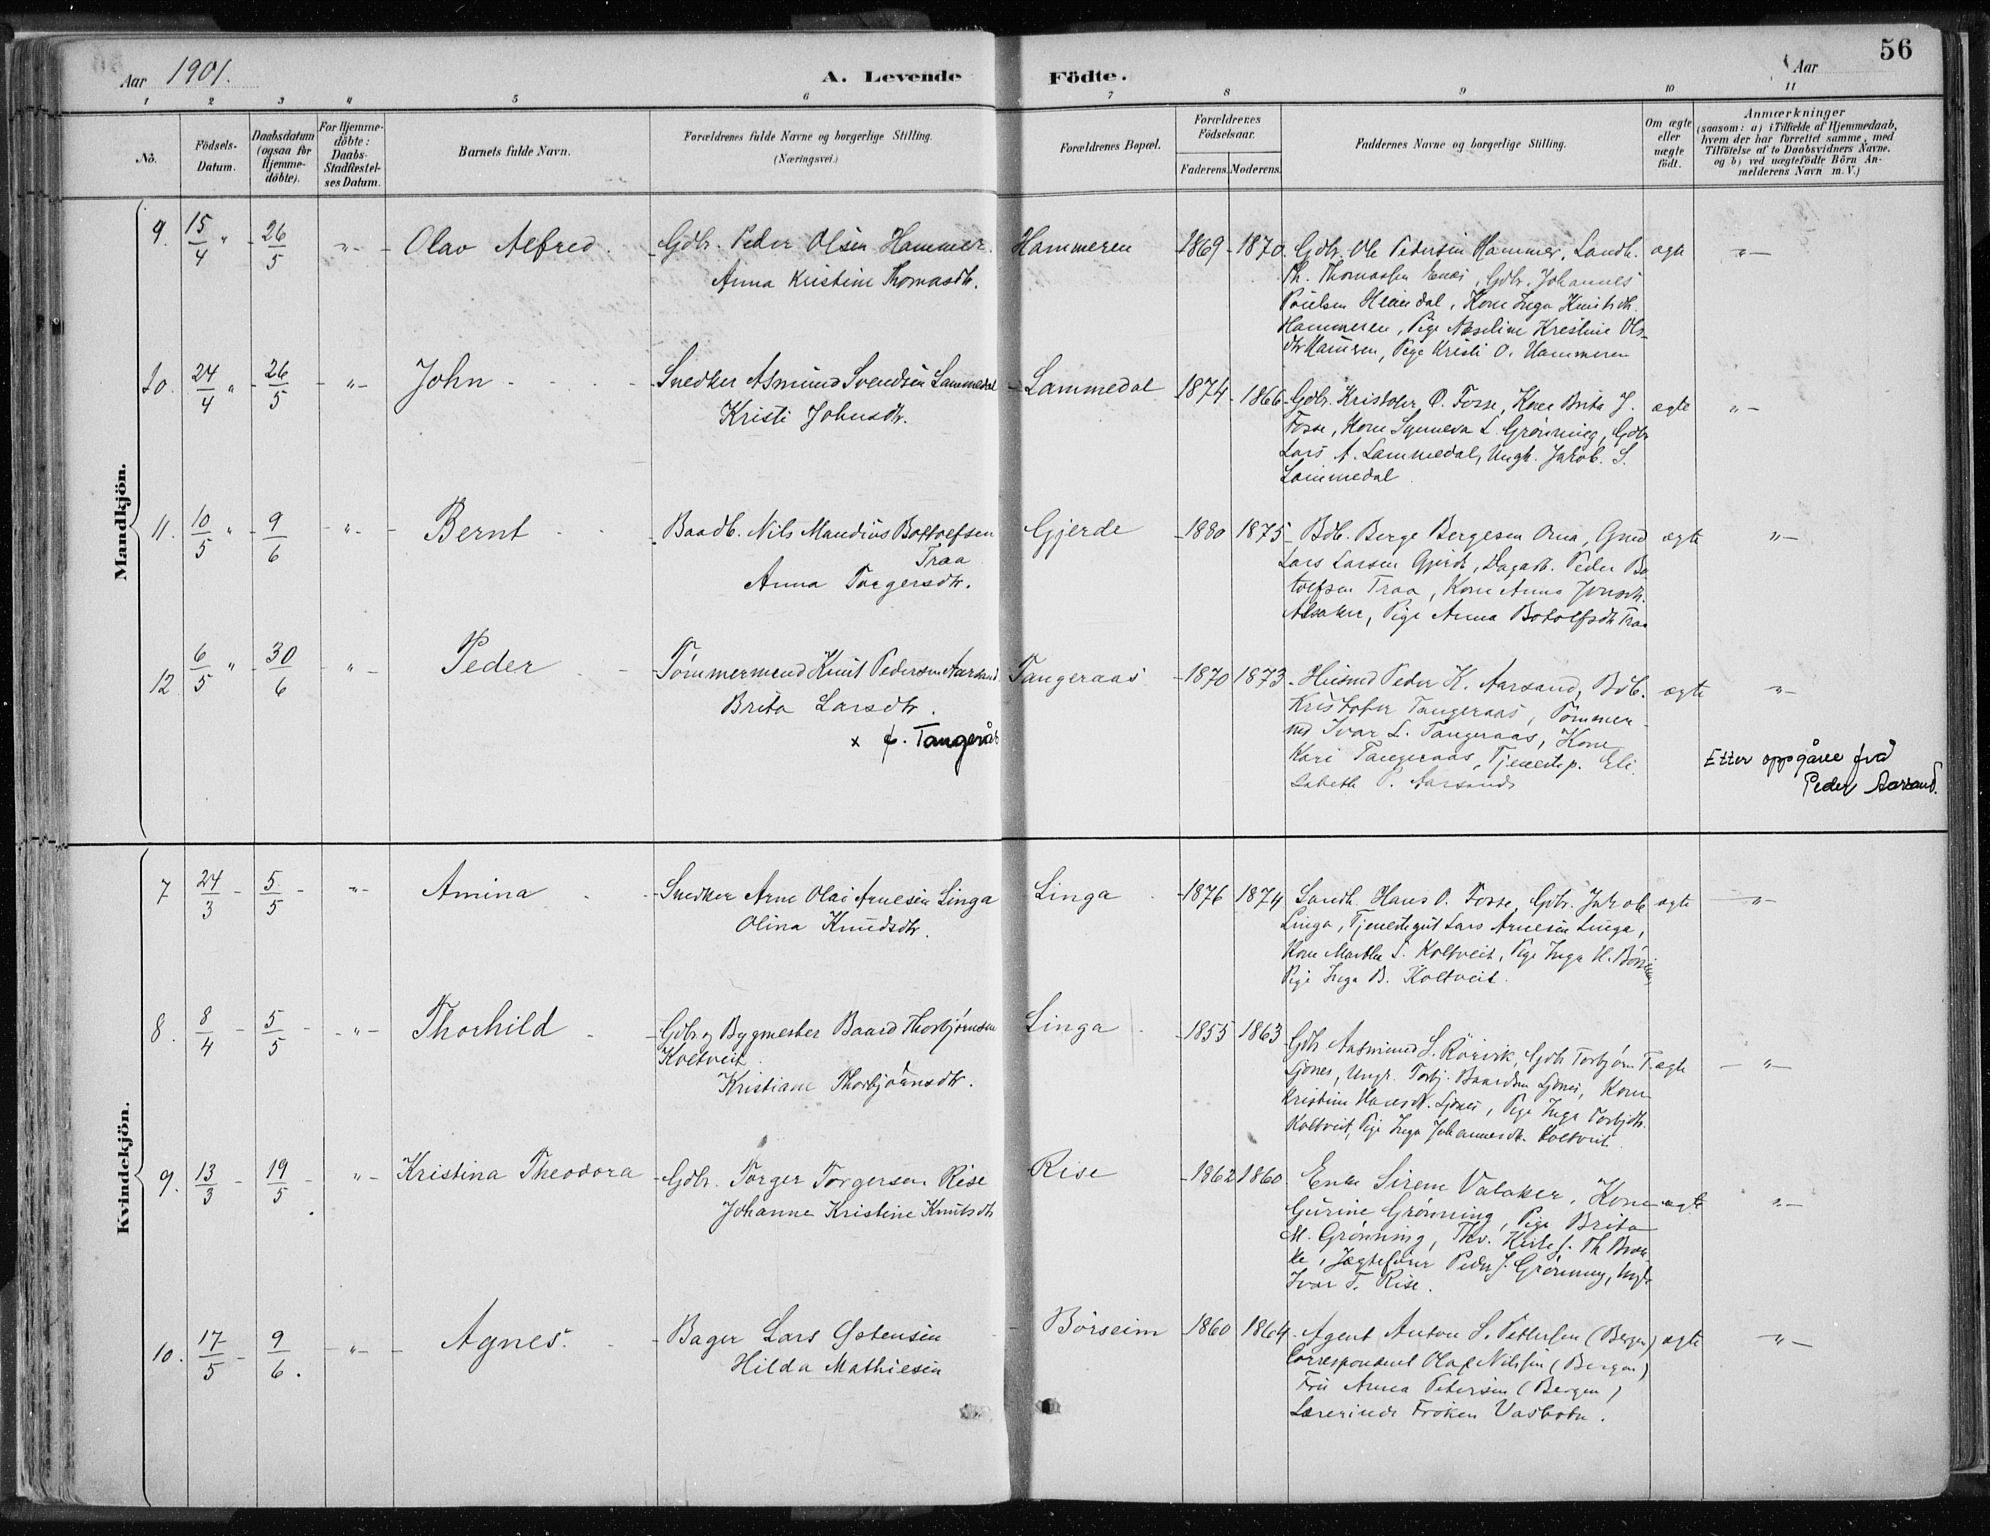 Aar 1901.
A. Levende Födte.
Aar
56
1 2 3 4 5 6 7 8 9 10 11
No.
Födsels-
Datum.
Daabsdatum
(ogsaa för
Hjemme-
döbte).
For Hjemme-
döbte:
Daabs-
Stadfæstel-
ses Datum.
Barnets fulde Navn.
Forældrenes fulde Navne og borgerlige Stilling.
(Næringsvei.)
Forældrenes Bopæl.
Forældrenes
Födselsaar.
Faderens. Moderens.
Faddernes Navne og borgerlige Stilling.
Om ægte
eller
uægte
født.
Anmærkninger
(saasom: a) i Tilfælde af Hjemmedaab,
hvem der har forrettet samme, med
Tilföielse af to Daabsvidners Navne.
og b) ved uægtefödte Börn An-
melderens Navn m. V.)
Mandkjön.
9. 15/4 " 26/5 " Olav Alfred. Gdbr. Peder Olsen Hammer Hammeren 1869 1870 Gdbr. Ole Pedersen Hammer, Landh. ægte "
Anna Kristine Thomasdtr.
Th. Thomassen, Gdbr. Johannes
Poulsen, Kone Inga Knutsdtr.
Hammeren, Pige Kristine Ols-
dtr Hammeren, Pige Kristi O. Hammeren
10. 24/4 " 26/5 " John Snedker Asmund Svendsen Lammedal Lammedal 1874 1866 Gdbr. Kristofer O. Fosse, Kone Brita J. ægte "
Kristi Johnsdtr.
Fosse, Kone Synneva L. Grønning, Gdbr
Lars A. Lammedal, Ungk. Jakob S.
Lammedal
11. 10/5 " 9/6 " Bernt Baadb. Nils Mandius Bottolfsen Gjerde 1880 1875 Bdb. Berge Bergesen Oma, Gmd ægte "
Traa
Anna Torgersdtr.
Lars Larsen Gjerde, Dagarb. Peder Bo-
tolfsen Traa, Kone Anna
Alsaker, Pige Anna Botolfsdtr Traa
12 6/5 " 30/6 " Peder Tømmermend Knut Pedersen Aarsand Tangeraas 1870 1873 Husmd Peder K. Aarsand, Bdb. ægte "
Brita Larsdtr.
x f. Tangerås
Kristofer Tangeraas, Tømmer-
md Ivar L. Tangeraas, Kone
Kari Tangeraas, Tjenestep. Eli-
sabeth P. Aarsand
Etter oppgåve frå
Peder Aarsand.
Kvindekjön.
7 24/3 5/5 " Amina Snedker Arne Olai Arnesen Linga Linga 1876 1874 Landh. Hans O. Fosse, Gdbr. Jakob ægte "
Olina Knudsdtr.
Linga, Tjenestegut Lars Arnesen Linga,
Kone Marthe S. Koltveit, Pige Inga H. Børseim,
Pige Inga B. Koltveit.
8. 8/4 5/5 " Thorhild Gdbr. og Bygmester Baard Thorbjørnsen Linga 1855 1863 Gdbr Aasmund L. Rørvik, Gdbr Torbjørn T. ægte "
Koltveit
Kristiane Thorbjørnsdtr.
Ljones, Ungk. Torbj. Baardsen Ljones, Kone
Kristine Hansdtr. Ljones, Pige Inga Torbjdtr.
Koltveit, Pige Inga Johannesdtr. Koltveit
9. 13/3 19/5 " Kristina Theodora Gdbr. Torger Torgersen Rise Rise 1862 1860 Enke Sirene Valaker, Kone ægte "
Johanne Kristine Knutsdtr
Gurine Grønning, Pige Brita
M. Grønning,
Jægtefører Peder J. Grønning, Ungk
Ivar T. Rise.
10. 17/5 9/6. " Agnes. Bager Lars Ostensen Børseim 1860 1864 Agent Anton L. Pettersen (Bergen) ægte "
Hilda Mathiesen
Correspondent Olaf Nilsen (Bergen)
Fru Anna Petersen (Bergen)
Lærerinde Frøken Vasbotn.